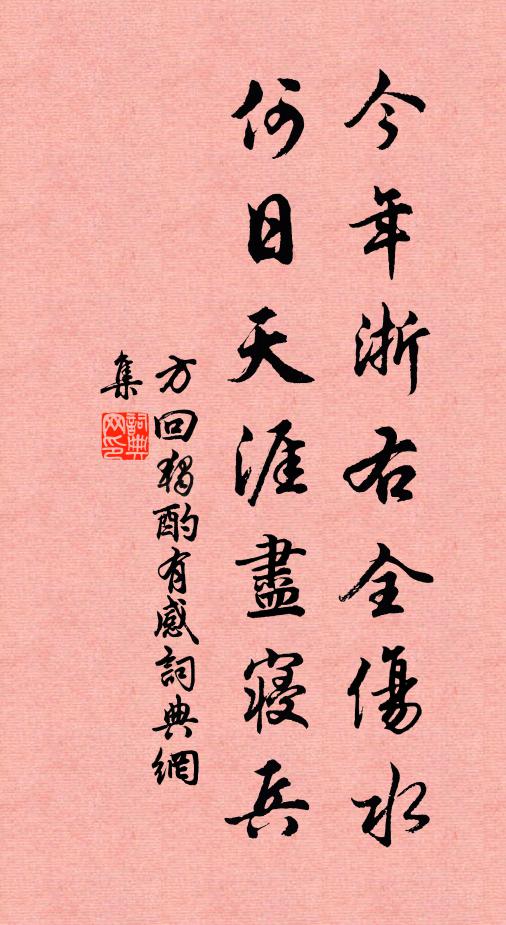 今年浙右全傷水
何日天涯盡寢兵
方回獨酌有感詞典網
集
詞典
网印